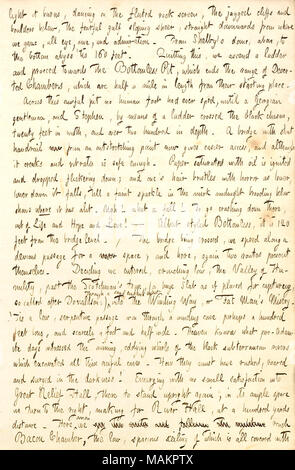 light it burns, dancing on the fluted rock screen, the jagged cliffs and
boulders below. The fearful gulf sloping sheer straight downwards from where
we gaze, all eye, awe, and admiration. From Shelby's dome, above, to
the bottom abyss is 160 feet. Quitting this, we ascend a ladder
and proceed towards the Bottomless Pit, which ends the range of Deser-
ted Chambers, which are half a mile in length from their starting place.
Across this awful pit no human foot had ever sped, until a Georgian
gentleman, and Stephen, by means of a ladder crossed the black chasm,
twenty feet in width, and over two hundred in depth. A bridge with slight
handrail now from an outstretching point now gives easier access, and although
it creaks and vibrates is safe enough. Paper saturated with oil is ignited
and dropped flickering down; and one's hair bristles with horror as lower
lower down it falls, till a faint sparkle in the inkest midnight brooding below
shews where it has alit. Ugh! what a fall! To go crashing down there
out of Life and Hope and Love! Albeit styled Bottomless, it is 160
feet from the bridge level. The bridge being crossed, we sped along a
devious passage for a space; and here, again two routes present
themselves. Deciding we entered, crouching low, the Valley of Hu-
mility, past the Scotchman's Trap, (a huge slab as of placed for capturing,
so called after Donaldson), into the Winding Way, or Fat Man's Misery.
'Tis a low, serpentine passage worn through a winding cave perhaps a hundred
feet long, and scarcely a foot and half wide. Heaven knows what pre-Adam-
ite days witnessed the mining, eddying whirls of the black subterranean rivers
which excavated all this awful cave. How they must have rushed, roared
and surged in the darkness! Emerging with no small satisfaction into
Great Relief Hall, there to stand upright again; in its ample space
we turn to the right, making for River Hall, at a hundred yards
distance. Here, we through
Bacon Chamber, the low, spacious ceiling of which is all covered with
alamy
Image ID: MAKPTX
www.alamy.com